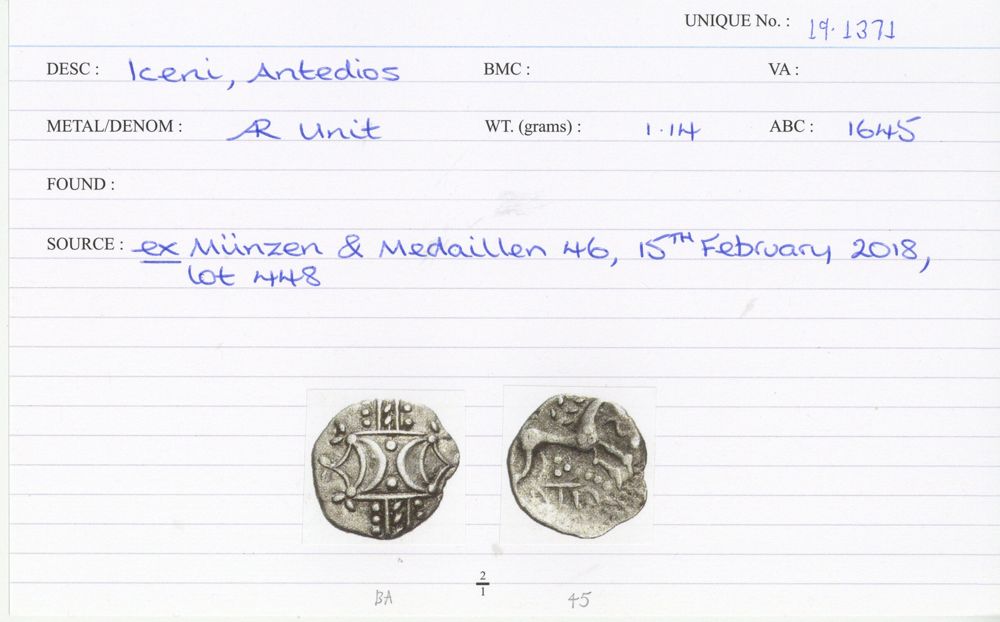 UNIQUE No. : 19.1371
DESC : Iceni, Antedios BMC : VA :
METAL/DENOM : AR Unit WT. (grams) : 1.14 ABC : 1645
FOUND :
SOURCE : ex Münzen & Medaillen 46, 15TH February 2018,
lot 448
2
1
BA 45